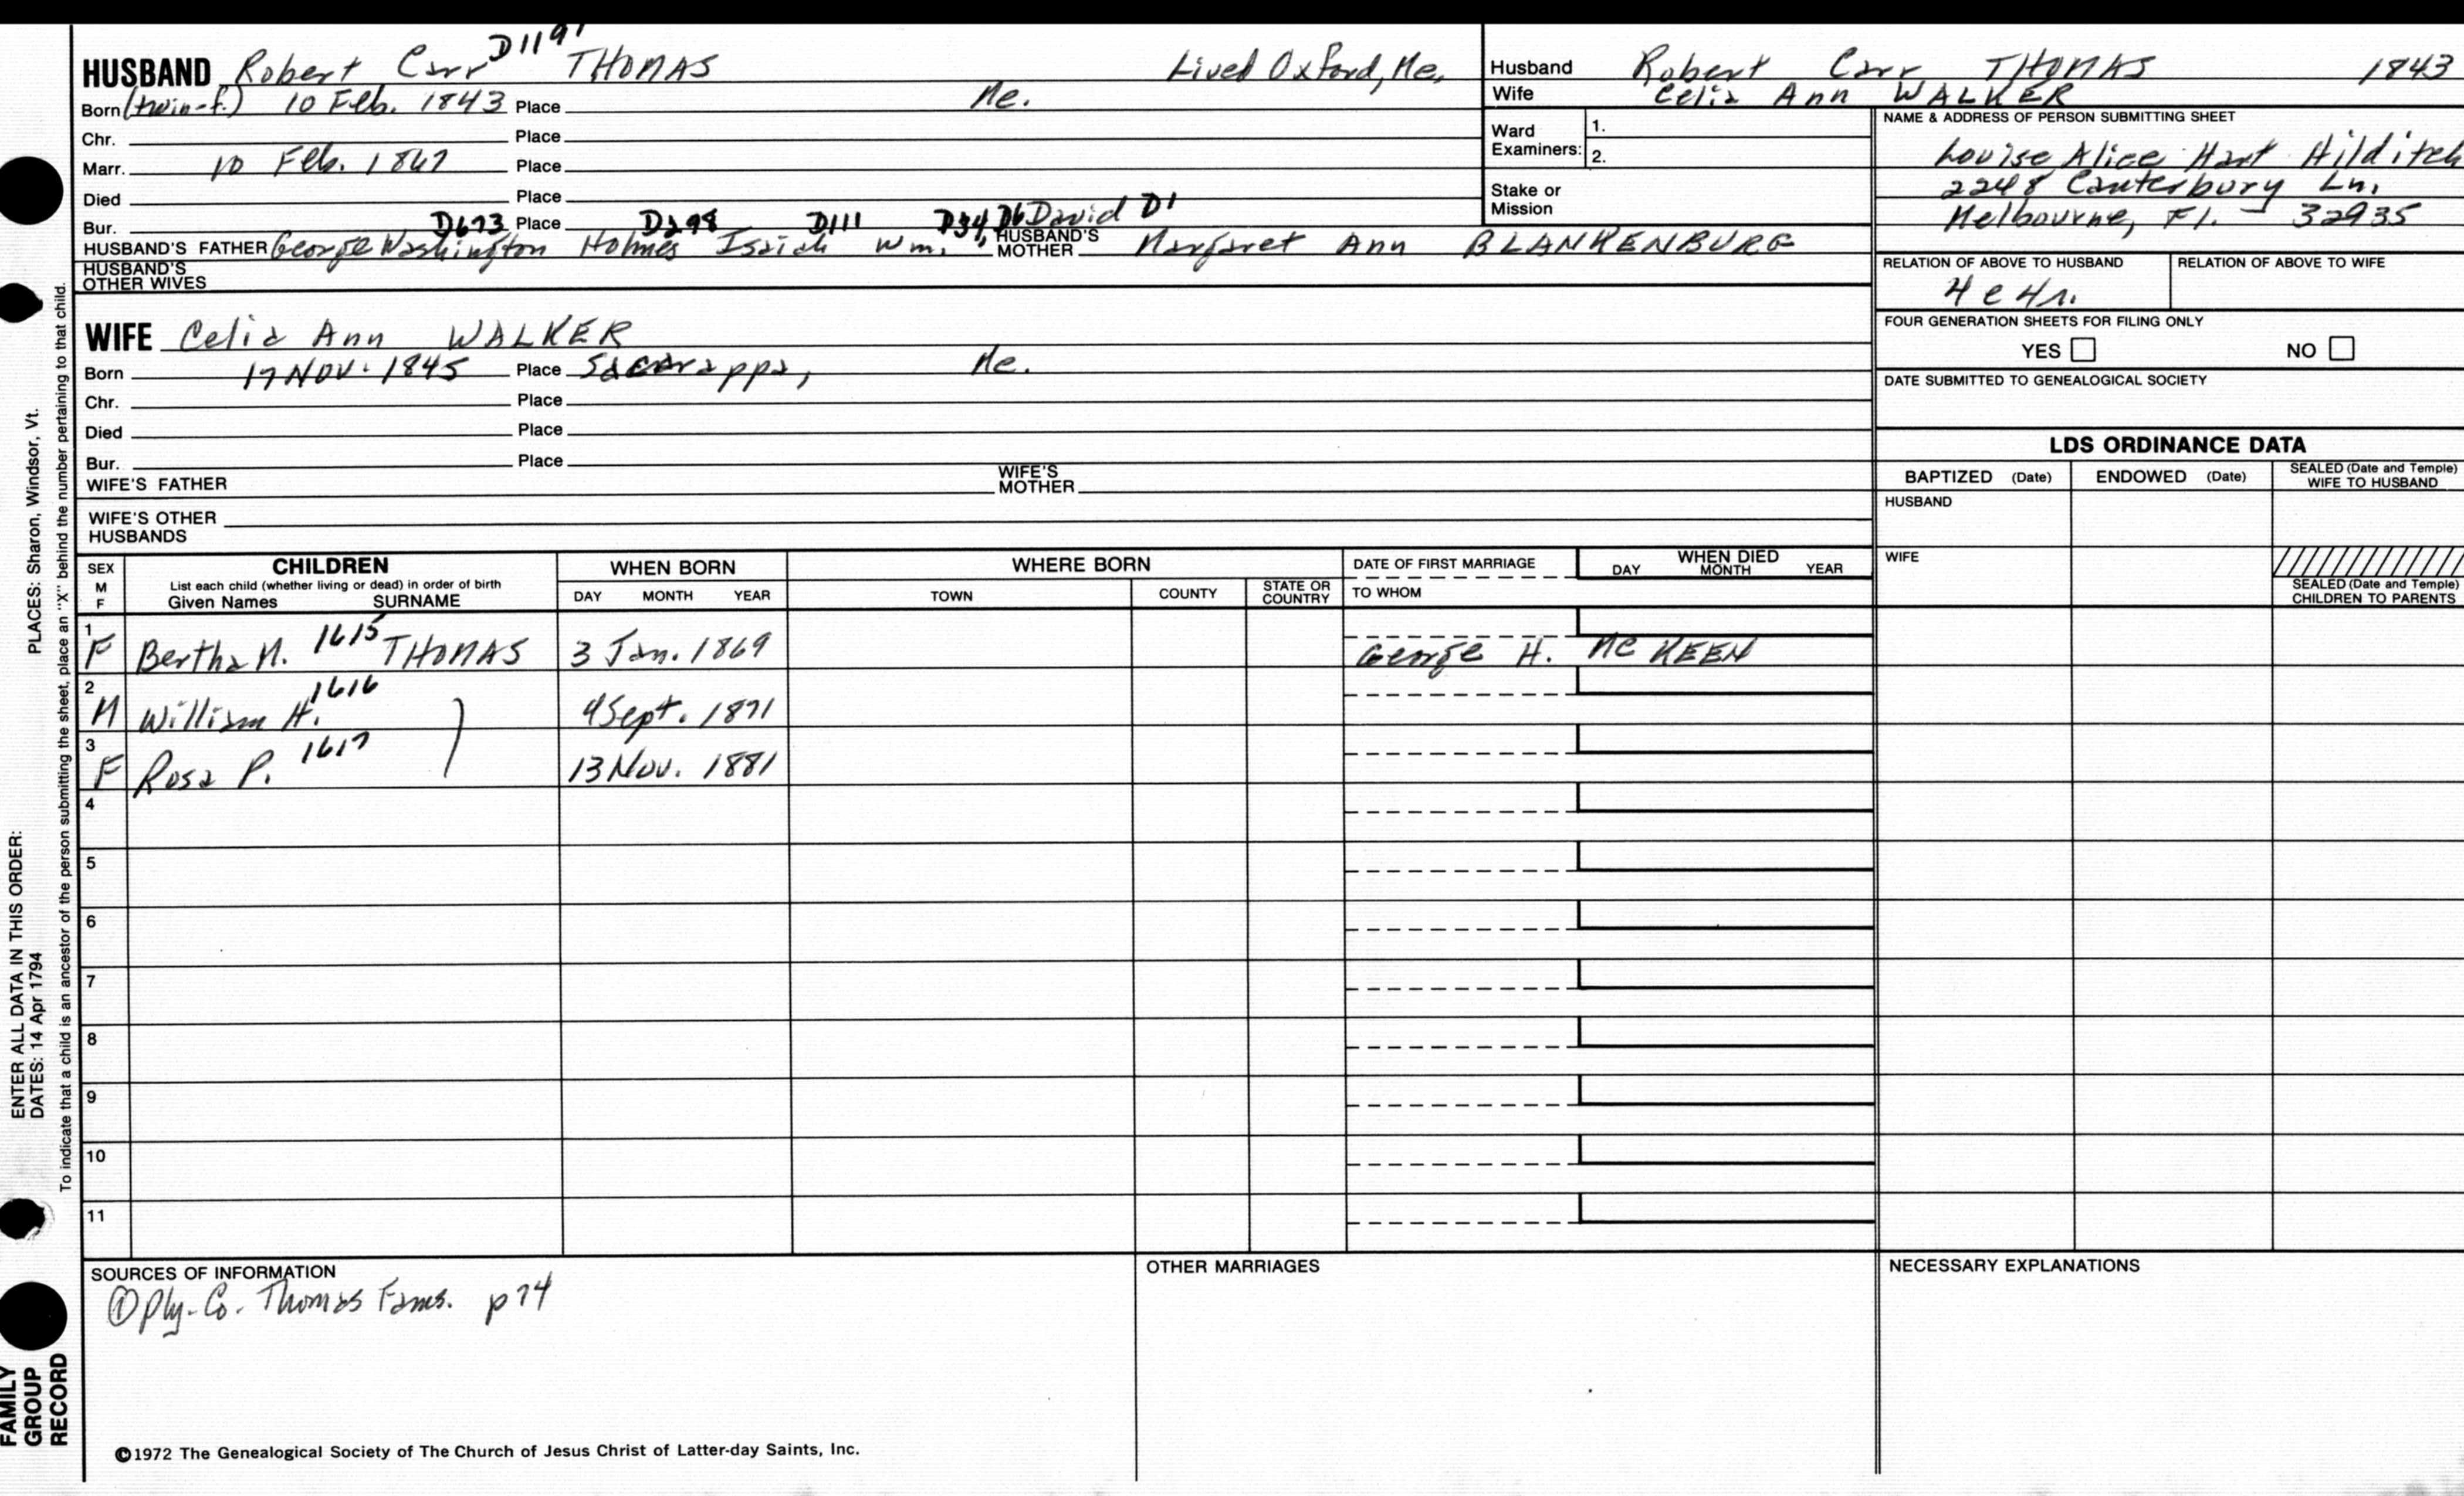 HUSBAND Robert Carr D1191 THOMAS Lived Oxford, Me.
Born (twin-f.) 10 Feb. 1843 Place Me.
Chr. Place
Marr. 10 Feb. 1867 Place
Died Place
Bur. D673 Place D298 D111 D34, D6 David D1
HUSBAND'S FATHER George Washington Holmes Isaiah Wm. HUSBAND'S MOTHER Margaret Ann BLANKENBURG
HUSBAND'S OTHER WIVES
WIFE Celia Ann WALKER
Born 17 NOV. 1845 Place Saccarappa, Me.
Chr. Place
Died Place
Bur. Place
WIFE'S FATHER WIFE'S MOTHER
WIFE'S OTHER HUSBANDS
Husband Robert Carr THOMAS 1843
Wife Celia Ann WALKER
Ward Examiners: 1.
2.
Stake or Mission
NAME & ADDRESS OF PERSON SUBMITTING SHEET
Louise Alice Hart Hilditch
2248 Canterbury Ln.
Melbourne, Fl. - 32935
RELATION OF ABOVE TO HUSBAND RELATION OF ABOVE TO WIFE
4c4r.
FOUR GENERATION SHEETS FOR FILING ONLY
YES NO
DATE SUBMITTED TO GENEALOGICAL SOCIETY
LDS ORDINANCE DATA
BAPTIZED (Date) ENDOWED (Date) SEALED (Date and Temple) WIFE TO HUSBAND
HUSBAND
WIFE
SEALED (Date and Temple) CHILDREN TO PARENTS
SEX M F CHILDREN WHEN BORN WHERE BORN DATE OF FIRST MARRIAGE WHEN DIED
List each child (whether living or dead) in order of birth
Given Names SURNAME DAY MONTH YEAR TOWN COUNTY STATE OR COUNTRY TO WHOM DAY MONTH YEAR
1 F Bertha M. 1615 THOMAS 3 Jan. 1869 George H. McKEEN
2 M William H. 1616 9 Sept. 1871
3 F Rosa P. 1617 13 Nov. 1881
4
5
6
7
8
9
10
11
SOURCES OF INFORMATION
① Ply-Co. Thomas Fams. p 74
OTHER MARRIAGES
NECESSARY EXPLANATIONS
©1972 The Genealogical Society of The Church of Jesus Christ of Latter-day Saints, Inc.
FAMILY GROUP RECORD
ENTER ALL DATA IN THIS ORDER:
DATES: 14 Apr 1794 PLACES: Sharon, Windsor, Vt.
To indicate that a child is an ancestor of the person submitting the sheet, place an "X" behind the number pertaining to that child.